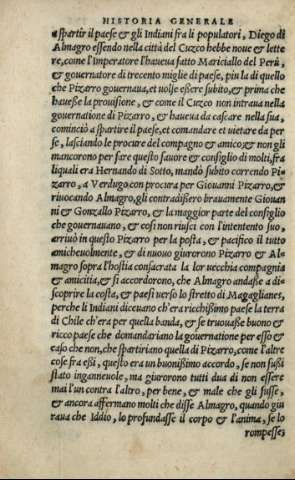 HISTORIA GENERALE
a spartir il paese & gli Indiani fra li populatori, Diego di
Almagro essendo nella città del Cuzco hebbe noue & lette
re, come l'Imperatore l'haueua fatto Mariciallo del Perù,
& gouernatore di trecento miglie di paese, piu la di quello
che Pizarro gouernaua, et volse essere subito, & prima che
hauesse la prouisione, & come il Cuzco non intraua nella
gouernatione di Pizarro, & haueua da cascare nella sua,
cominciò a spartire il paese, et comandare et vietare da per
se, lasciando le procure del compagno & amico, & non gli
mancorono per fare questo fauore & consiglio di molti, fra
liquali era Hernando di Sotto, mandò subito correndo Pi-
zarro, a Verdugo con procura per Giouanni Pizarro, &
riuocando Almagro, gli contradissero brauamente Giouan
ni & Gonzallo Pizarro, & la maggior parte del consiglio
che gouernauano, & così non riusci con l'intentento suo,
arriuò in questo Pizarro per la posta, & pacifico il tutto
amicheuolmente, & di nuouo giurorono Pizarro & Al-
magro sopra l'hostia consacrata la lor vecchia compagnia
& amicitia, & si accordorono, che Almagro andasse a di-
scoprire la costa, & paesi verso lo stretto di Magaglianes,
perche li Indiani diceuano ch'era ricchissimo paese la terra
di Chile ch'era per quella banda, & se truouasse buono &
ricco paese che domandariano la gouernatione per esso &
caso che non, che spartiriano quella di Pizarro, come l'altre
cose fra essi, questo era un buonissimo accordo, se non fussi
stato ingannеuole, ma giurorono tutti dua di non essere
mai l'un contra l'altro, per bene, & male che gli fusse,
& ancora affermano molti che disse Almagro, quando giu
raua che Iddio, lo profundasse il corpo & l'anima, se lo
rompesse;